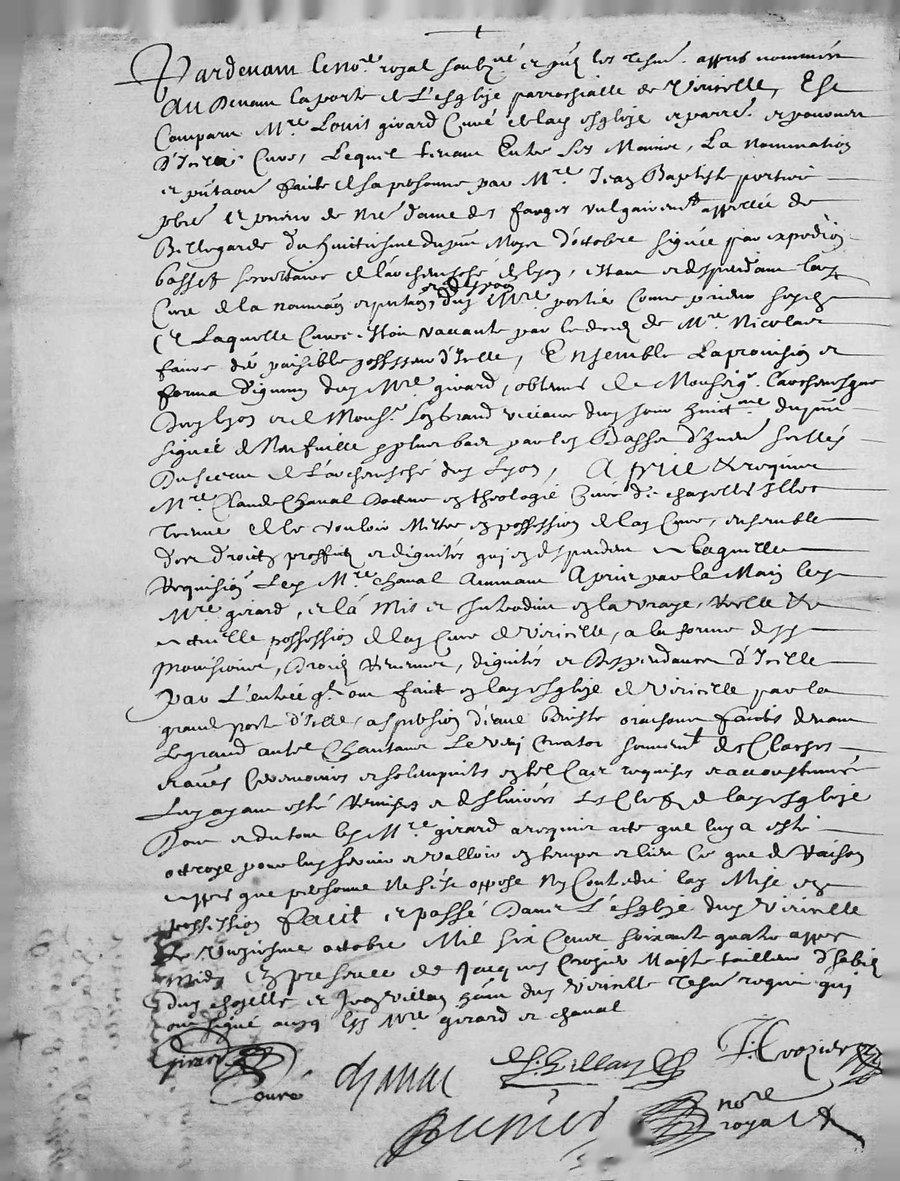 Pardevant le no.re royal soubz.né et p.ns les tesm. appres nommées
Au devant la porte de l'esglize parrochialle de Viricelle, Est
Comparu M.re Louis girard Curé de lad esglize et parre. et pourveu
d'icelle Cure, Lequel tenant Entre ses Mains, La nomination
et p.ntaon faicte de sa personne par M.re Jean Baptiste portier
pbre et prieur de n.re dame des farges vulgairem.t appellée de
Bellegarde du huictiesme du p.nt Moys d'octobre signée par expedion
basset secretaire de l'archevesché de lyon, estant et despendant lad
Cure de la nominaon et p.ntaon dud M.re portier Comme prieur susd
Et Laquelle Cure estoit vaccante par le deces de M.re Nicolas
faure der paisible possesseur d'icelle, Ensemble La provision et
forma dignum dud M.re girard, obtenus de Monseig.r L'archevesque
dud lyon et de Mons.r grand viccaire dud jour huict.me du p.nt
signée de Neufville et plus bas par led Basset d'huem scellés
du sceau de l'archevesché dud Lyon, A prié & requis
M.re Claude Chanal docteur en theologie Curé de chapelle
de le vouloir Mettre en possession de lad Cure, ensemble
des droictz proffictz et dignités quy en despendent a laquelle
Requisition Led M.re Chanal A prins par la Main led
M.re girard, et l'a Mis et Introduit en la vraye, Reelle &
actuelle possession de lad Cure de Viricelle, a la forme desd
provisions, droictz Revenus, dignités et despendances d'icelle
par L'entrée q.l ont faict en lad esglize de Viricelle par la
grand port d'icelle, aspersion d'eaue Beniste oraisons faictes devant
Le grand autel Chantant Le veni Creator sonnem.t des Cloches
et autres Ceremonies et solempnités en tel Cas requises et accoustumées
Luy ayant esté Remises et deslivrées Les Clefz de lad esglize
Dont et du tout led M.re girard a requis acte que luy a esté
octroyé pour luy servir et valloir en temps et lieu Ce que de Raison
appres que personne Ne s'est opposé Ny Contredit lad Mise en
possession Faict et passé Dans L'esglize dud Viricelle
Le Unziesme octobre Mil six Cens soixante quatre appres
Midy En presence de Jacques Crozier Maistre tailleur d'habits
dud chazelle et Jean Villan dud Viricelle tesm requis quy
ont signé avecq led M.re girard et chanal
Girard
Curé
chanal
J. Villan
J. Crozier
no.re
royal